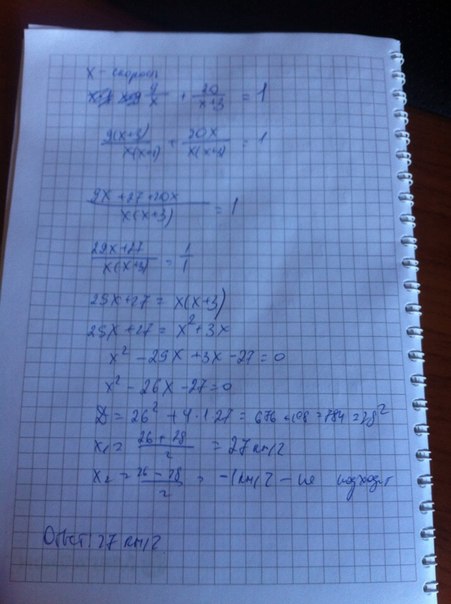 x - скорость
9/x + 20/(x+3) = 1
9(x+3)/x(x+3) + 20x/x(x+3) = 1
9x+27+20x/x(x+3) = 1
29x+27/x(x+3) = 1/1
29x+27 = x(x+3)
29x+27 = x²+3x
x² - 29x + 3x - 27 = 0
x² - 26x - 27 = 0
D = 26² + 4·1·27 = 676 + 108 = 784 = 28²
x₁ = 26+28/2 = 27 км/ч
x₂ = 26-28/2 = -1 км/ч - не подходит
Ответ: 27 км/ч